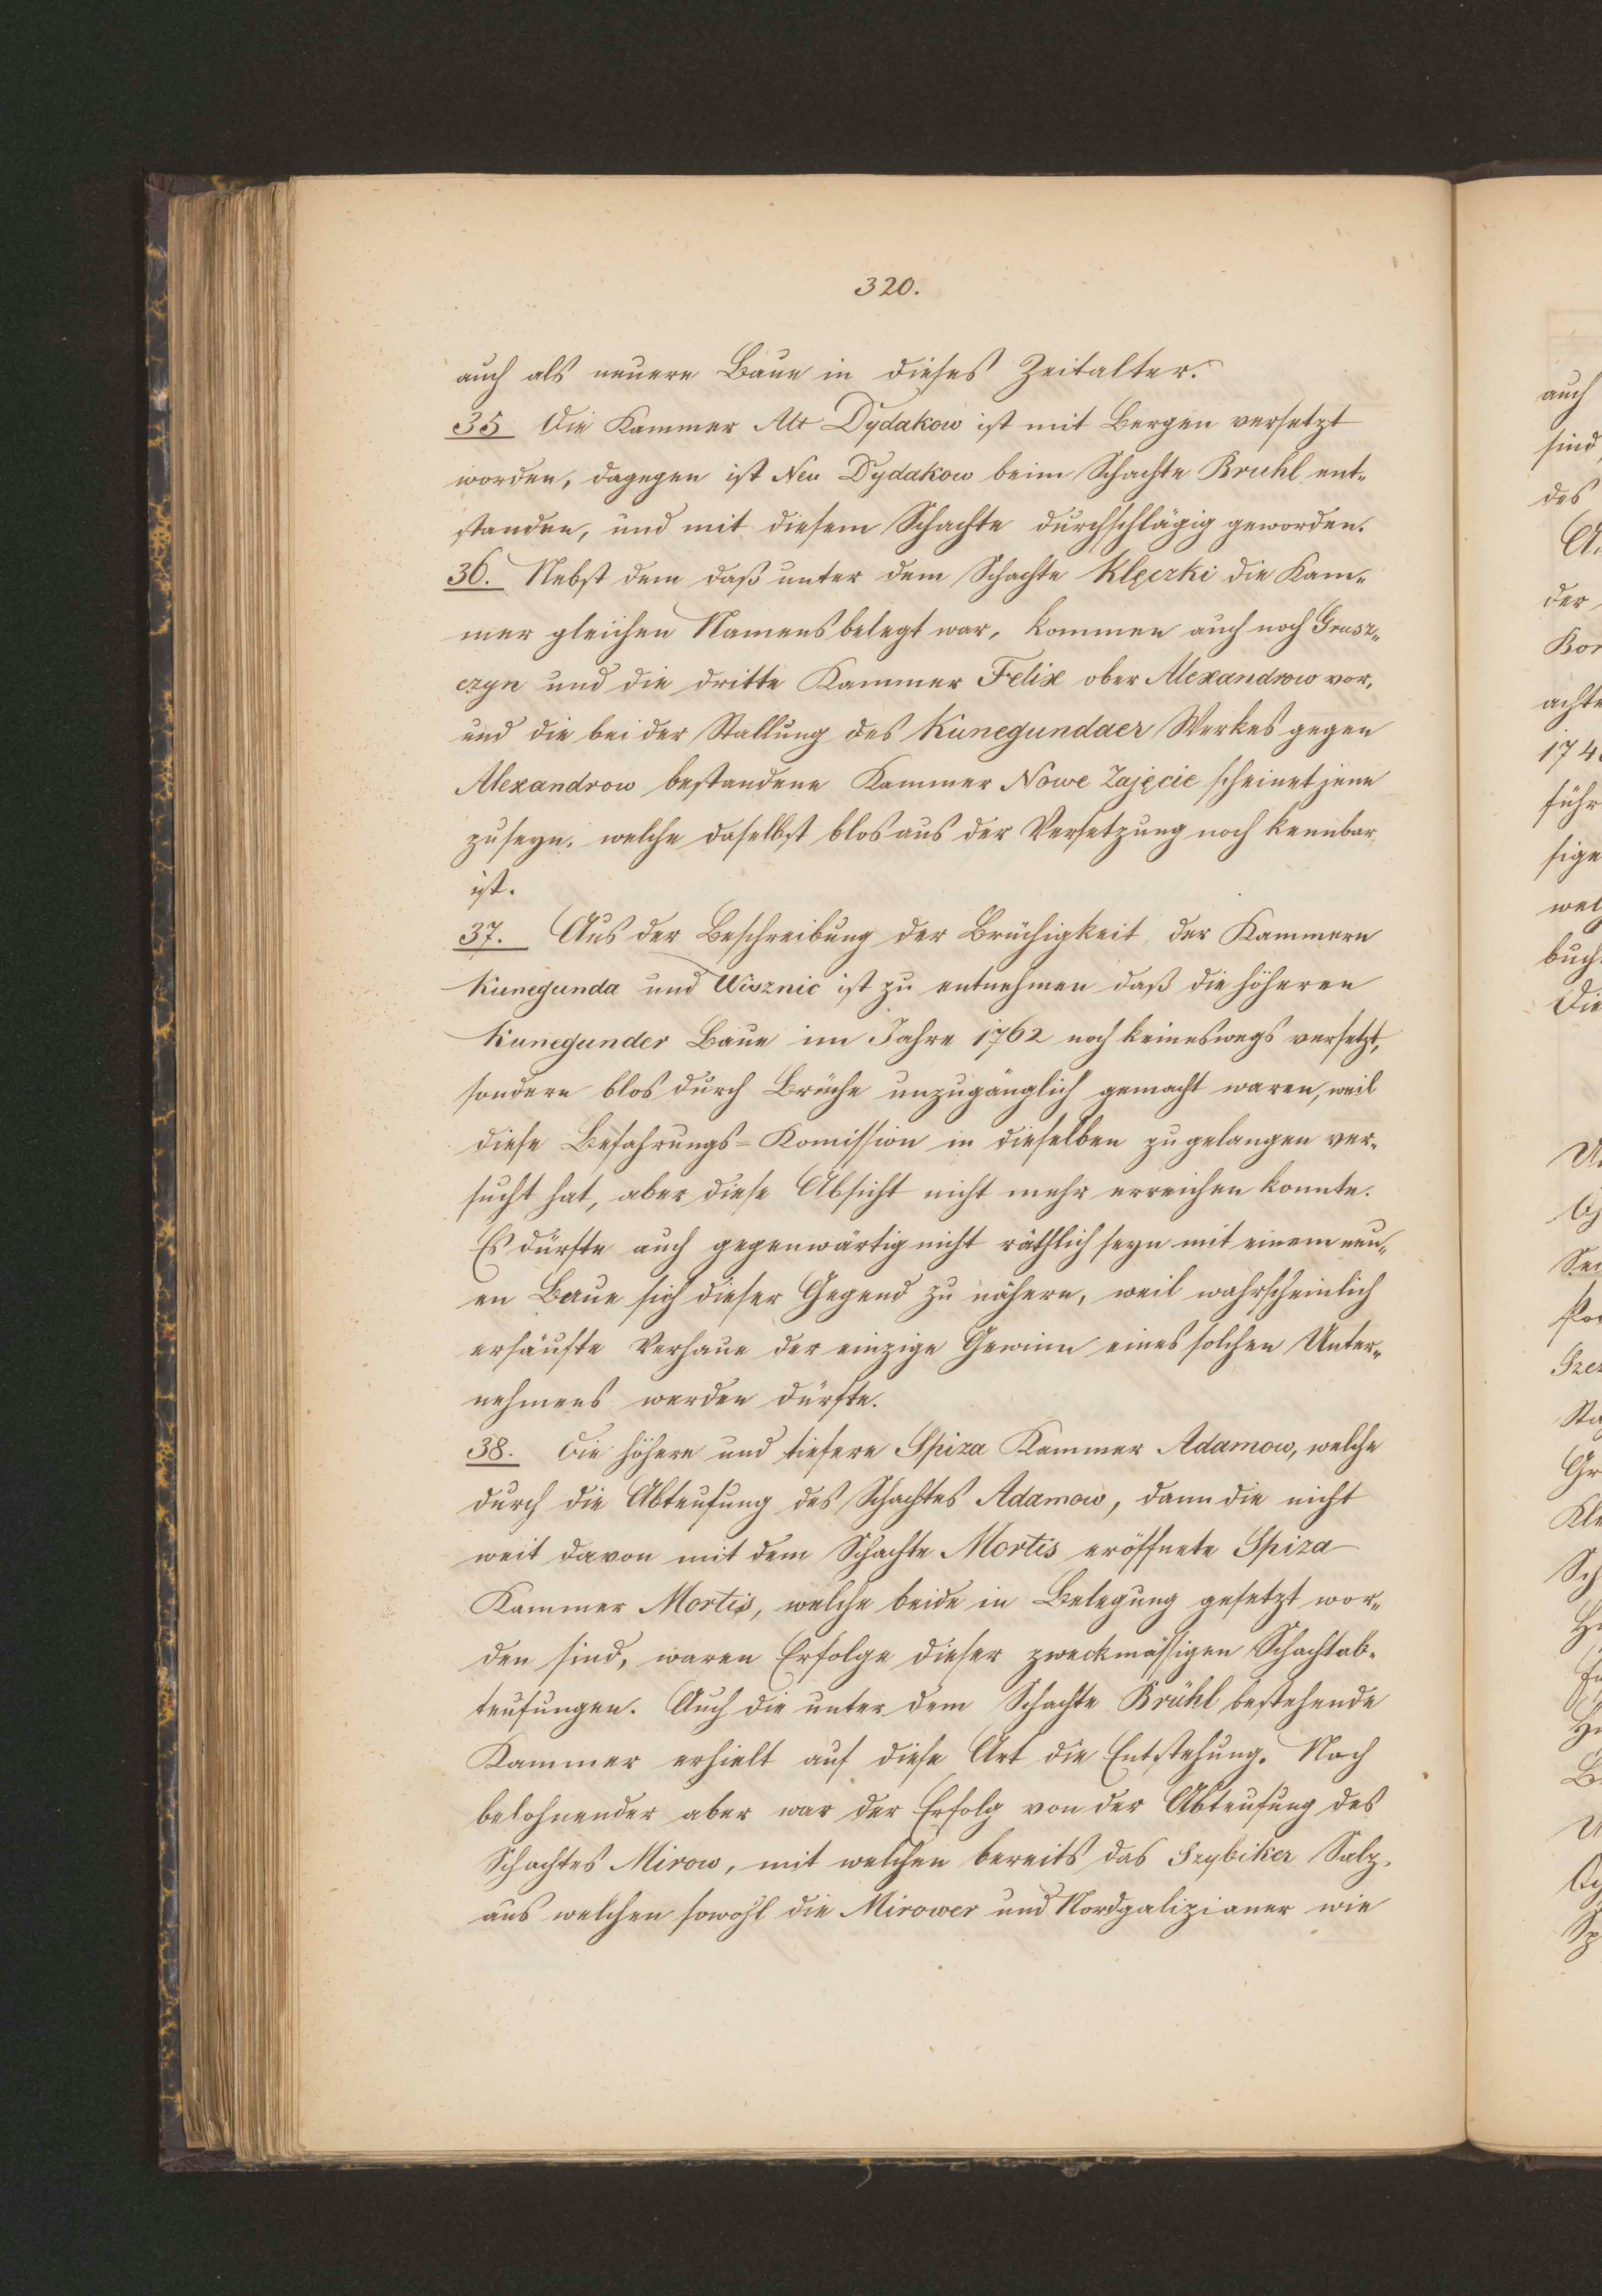 320.
auch als neuere Baue in dieses Zeitalter.
35 Die Kammer Alt Dydakow ist mit Bergen versetzt
worden, dagegen ist Neu Dydakow beim Schachte Bruhl ent-
standen, und mit diesem Schachte durchschlägig geworden.
36. Nebst dem daß unter dem Schachte Klęczki die Kam-
mer gleichen Namens belegt war, kommen auch noch Grusz-
czyn und die dritte Kammer Felix ober Alexandrow vor,
und die bei der Stallung des Kunegundaer Werkes gegen
Alexandrow bestandene Kammer Nowe Zajęcie scheinet jene
zu seyn, welche daselbst blos aus der Versetzung noch kennbar
ist.
37. Aus der Beschreibung der Brüchigkeit der Kammern
Kunegunda und Wisznic ist zu entnehmen daß die höheren
Kunegunder Baue im Jahre 1762 noch keineswegs versetzt,
sondern blos durch Brüche unzugänglich gemacht waren, weil
diese Befahrungs-Komission in dieselben zu gelangen ver-
sucht hat, aber diese Absicht nicht mehr erreichen konnte.
Es dürfte auch gegenwärtig nicht räthlich seyn mit einem neu-
en Baue sich dieser Gegend zu nähern, weil wahrscheinlich
ersäufte Verhaue der einzige Gewinn eines solchen Unter-
nehmens werden dürfte.
38. Die höhere und tiefere Spiza Kammer Adamow, welche
durch die Abteufung des Schachtes Adamow, dann die nicht
weit davon mit dem Schachte Mortis eröffnete Spiza
Kammer Mortis, welche beide in Belegung gesetzt wor-
den sind, waren Erfolge dieser zweckmässigen Schachtab-
teufungen. Auch die unter dem Schachte Brühl bestehende
Kammer erhielt auf diese Art die Entstehung. Noch
belohnender aber war der Erfolg von der Abteufung des
Schachtes Mirow, mit welchen bereits das Szybiker Salz,
aus welchen sowohl die Mirower und Nordgalizianer wie
auch
sind,
des
der
Kor
achte
174
führ
sige
wel
buch
Die